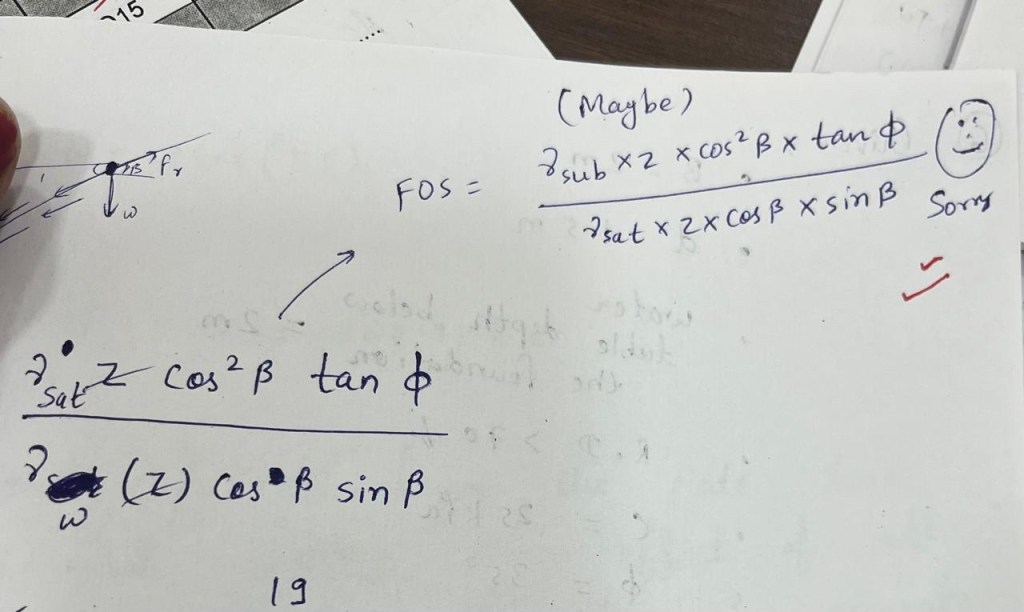 015
(Maybe)
FOS = γsub × z × cos² β × tan φ
γsat × z × cos β × sin β
Sorry
β fr
w
γsat z cos² β tan φ
γw (z) cos β sin β
19